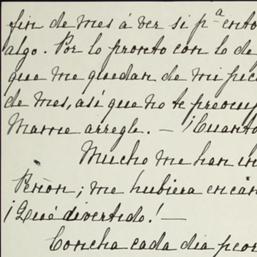 fin de mes á ver si pª ento
algo. Por lo pronto con lo de
que me quedan de mi
de mes, así que no te preocup
arregle. — ¡Cuanto
Mucho me han
; me hubiera encan
¡Qué divertido! —
Concha cada dia peor